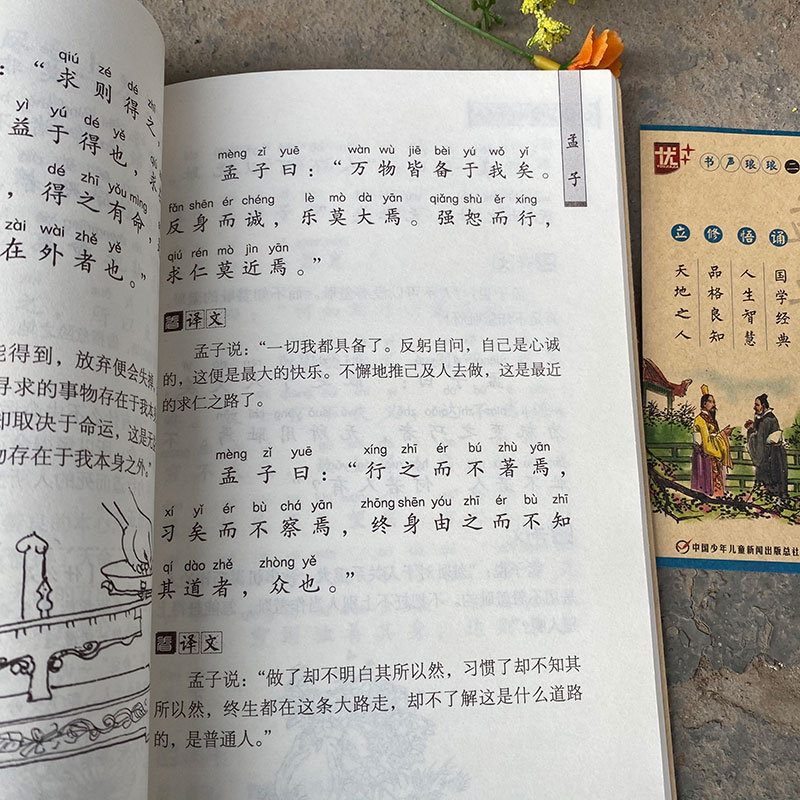 qiú zé dé zhī
：“求则得之，
yì yú dé yě
益于得也，求
dé zhī yǒu mìng
，得之有命，
zài wài zhě yě
在外者也。”
能得到，放弃便会失掉，
寻求的事物存在于我本
却取决于命运，这是无
物存在于我本身之外。”
孟子
mèng zǐ yuē wàn wù jiē bèi yú wǒ yǐ
孟子曰：“万物皆备于我矣。
fǎn shēn ér chéng lè mò dà yān qiǎng shù ér xíng
反身而诚，乐莫大焉。强恕而行，
qiú rén mò jìn yān
求仁莫近焉。”
译文
孟子说：“一切我都具备了。反躬自问，自己是心诚
的，这便是最大的快乐。不懈地推己及人去做，这是最近
的求仁之路了。
mèng zǐ yuē xíng zhī ér bù zhù yān
孟子曰：“行之而不著焉，
xí yǐ ér bù chá yān zhōng shēn yóu zhī ér bù zhī
习矣而不察焉，终身由之而不知
qí dào zhě zhòng yě
其道者，众也。”
译文
孟子说：“做了却不明白其所以然，习惯了却不知其
所以然，终生都在这条大路走，却不了解这是什么道路
的，是普通人。”
优++
书声琅琅二
立修悟诵
国学经典
人生智慧
品格良知
天地之人
中国少年儿童新闻出版总社